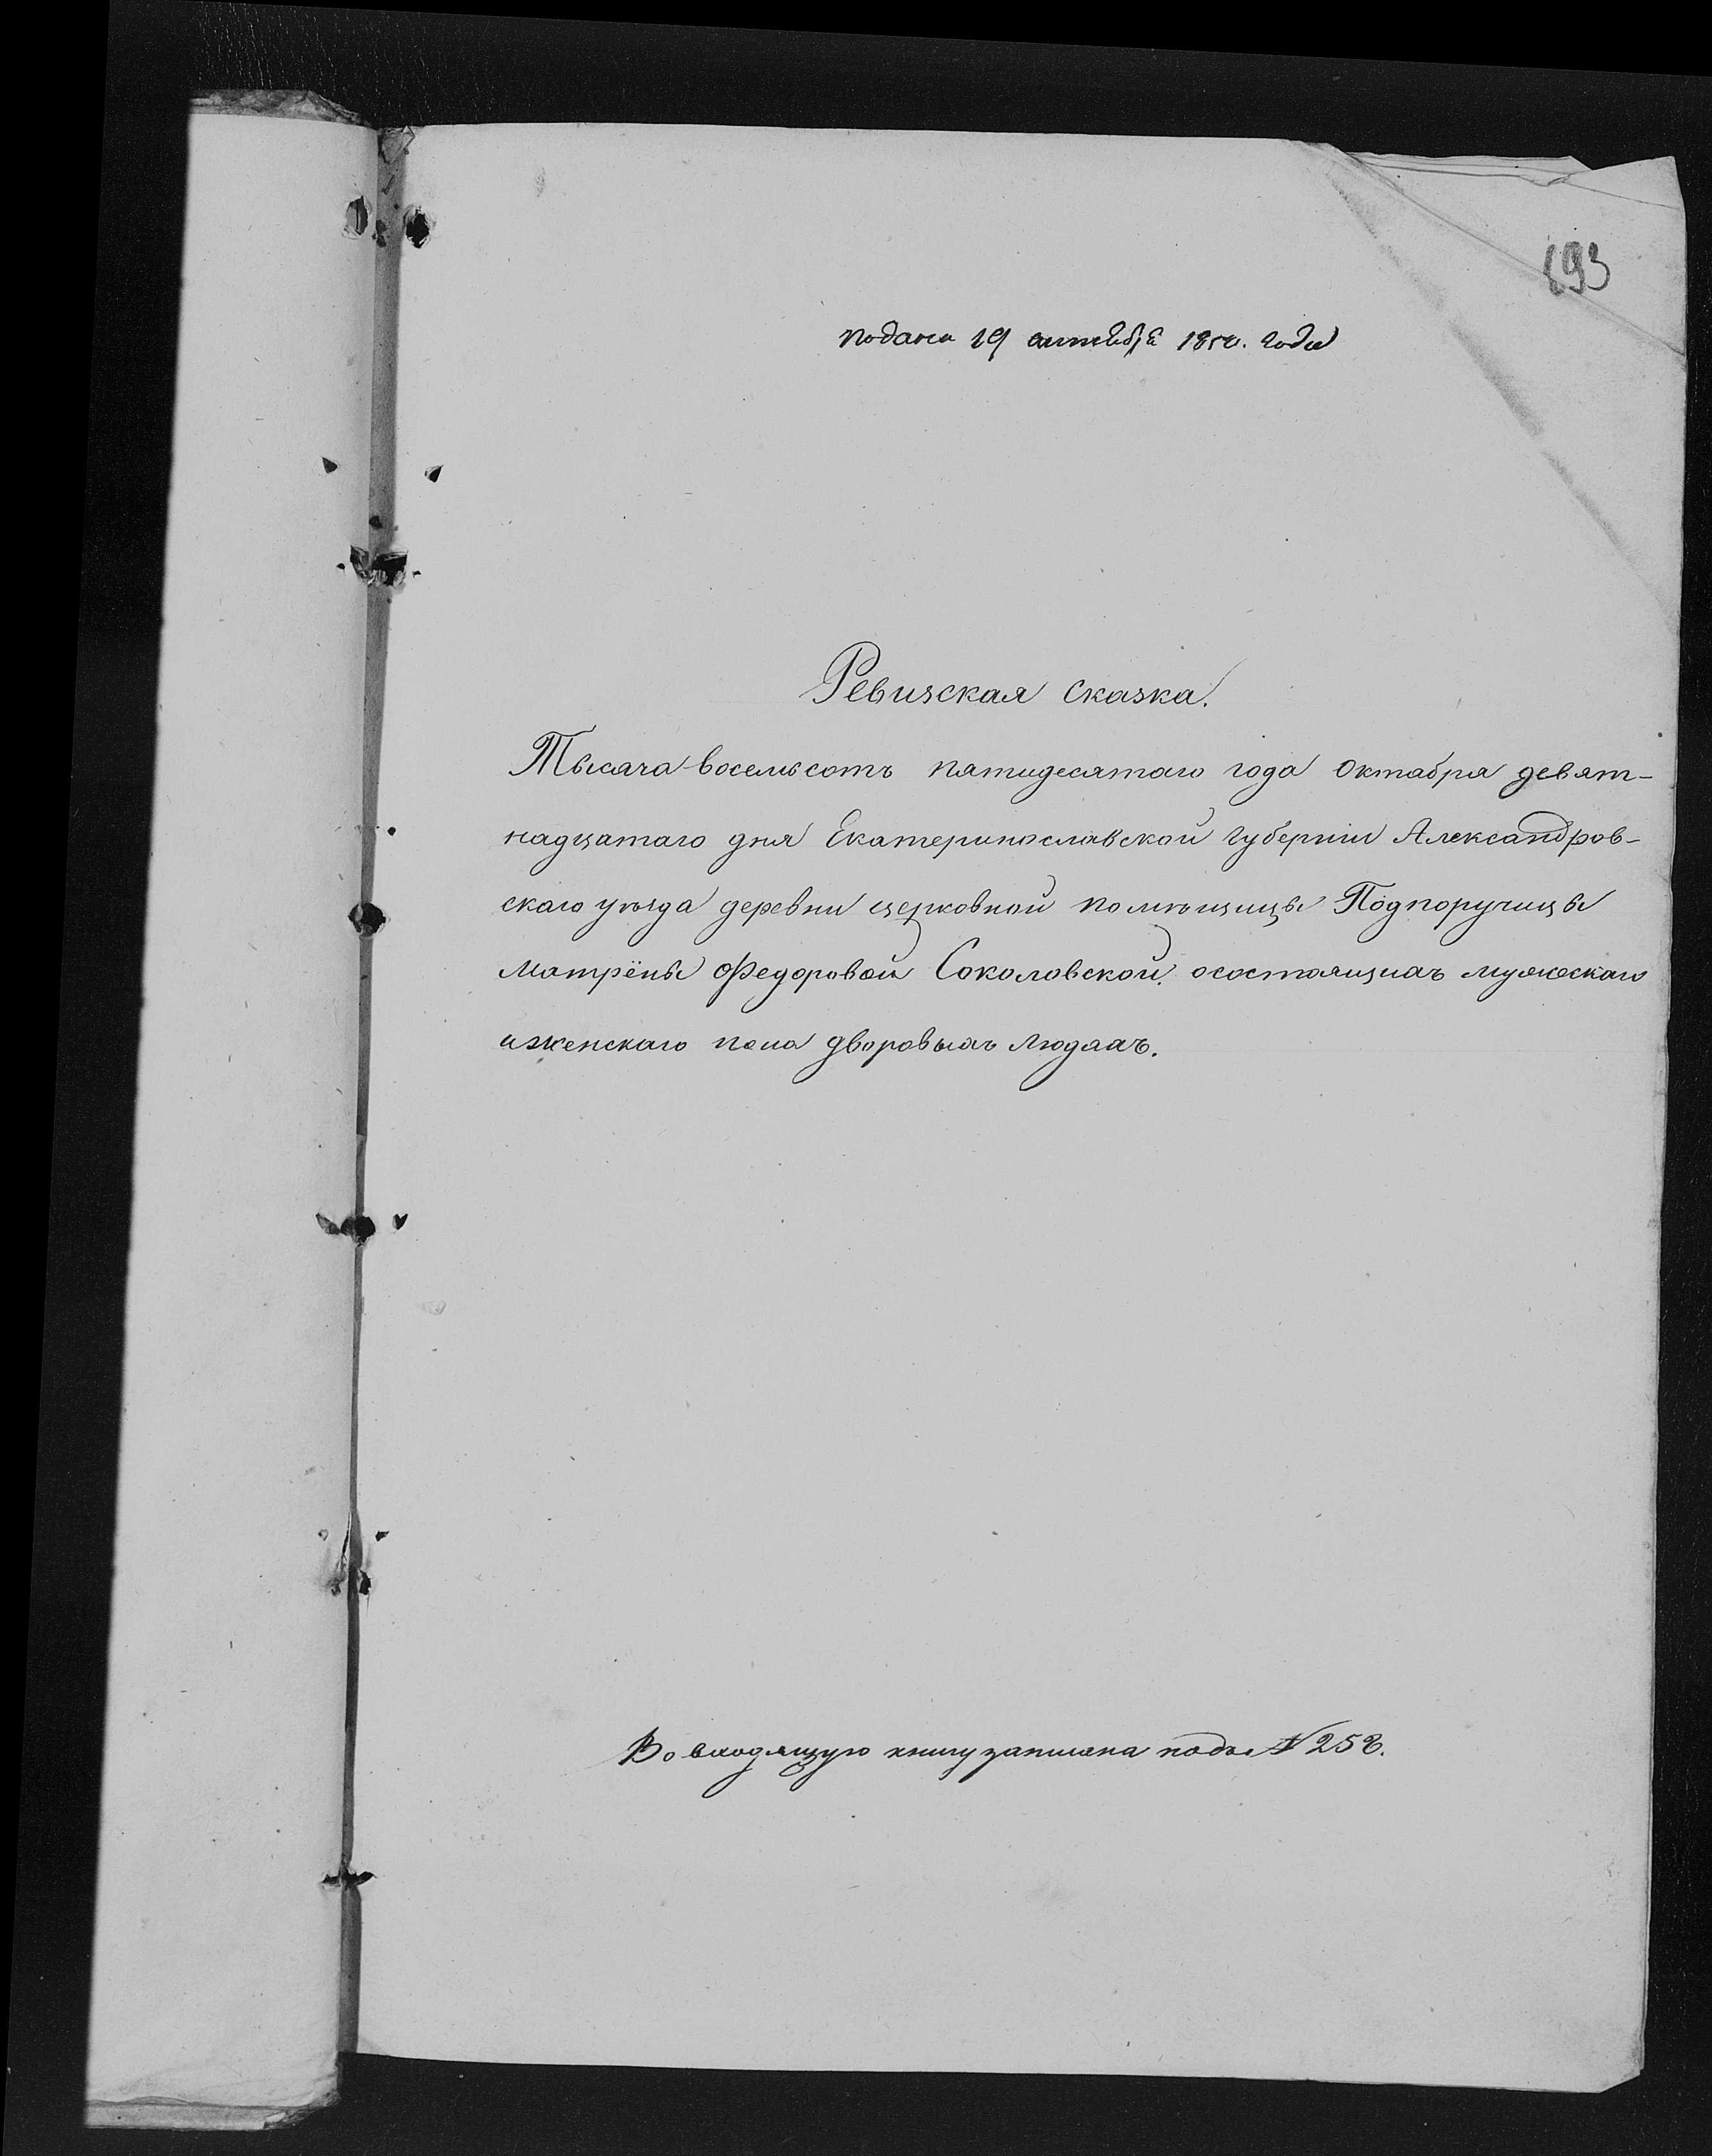 193
подана 19 октября 1850. года
Ревизская сказка.
Тысяча восемьсотъ пятидесятаго года Октября девят-
надцатаго дня Екатеринославской губерніи Александров-
скаго уѣзда деревни церковной помѣщицы Подпоручицы
Матрёны Федоровой Соколовской. осостоящихъ мужескаго
иженскаго пола дворовыхъ людяхъ.
Во входящую книгу записана подъ № 258.